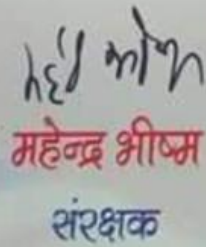 महेन्द्र भीष्म
संरक्षक